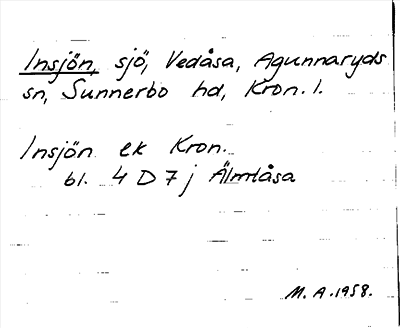 Insjön, sjö, Vedåsa, Agunnaryds
sn, Sunnerbo hd, Kron. l.
Insjön ek Kron.
bl. 4 D 7 j Älmtåsa
M. A. 1958.